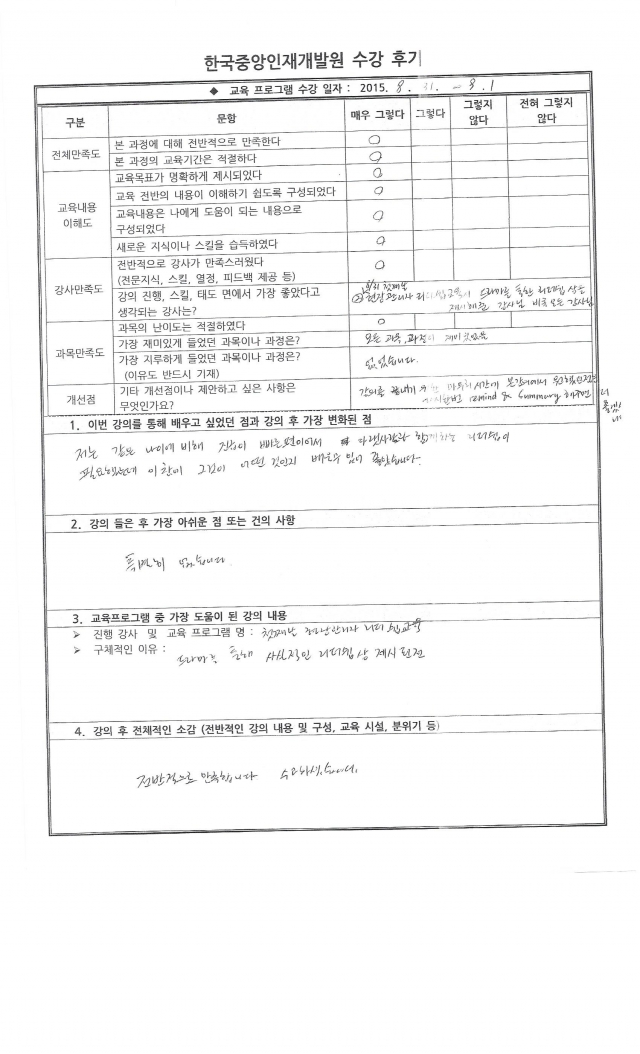 한국중앙인재개발원 수강 후기
◆ 교육 프로그램 수강 일자 : 2015. 8. 31.
구분 문항 매우 그렇다 그렇다 그렇지 않다 전혀 그렇지 않다
전체만족도 본 과정에 대해 전반적으로 만족한다 ○
본 과정의 교육기간은 적절하다 ○
교육내용 이해도 교육목표가 명확하게 제시되었다 ○
교육 전반의 내용이 이해하기 쉽도록 구성되었다 ○
교육내용은 나에게 도움이 되는 내용으로
구성되었다 ○
새로운 지식이나 스킬을 습득하였다 ○
강사만족도 전반적으로 강사가 만족스러웠다
(전문지식, 스킬, 열정, 피드백 제공 등) ○
강의 진행, 스킬, 태도 면에서 가장 좋았다고
생각되는 강사는?
드라마를 통한 리더쉽 상을
제시해준 강사님 비롯 모든 강사님
과목만족도 과목의 난이도는 적절하였다 ○
가장 재미있게 들었던 과목이나 과정은? 모든 과목, 과정이 재미있었음
가장 지루하게 들었던 과목이나 과정은?
(이유도 반드시 기재) 없었습니다.
개선점 기타 개선점이나 제안하고 싶은 사항은
무엇인가요?
remind & Summary 해주면
1. 이번 강의를 통해 배우고 싶었던 점과 강의 후 가장 변화된 점
저는 같은 나이에 비해 진급이 빠른편이어서 다른사람과 함께하는 리더쉽이
필요했는데 이 찬이 그것이 어떤 것인지 배울수 있어 좋았습니다.
2. 강의 들은 후 가장 아쉬운 점 또는 건의 사항
특별히 없습니다.
3. 교육프로그램 중 가장 도움이 된 강의 내용
➢ 진행 강사 및 교육 프로그램 명 : 첫째날 현장관리자 리더쉽교육
➢ 구체적인 이유 : 드라마를 통해 사실적인 리더쉽상 제시
4. 강의 후 전체적인 소감 (전반적인 강의 내용 및 구성, 교육 시설, 분위기 등)
전반적으로 만족합니다 수고하셨습니다.